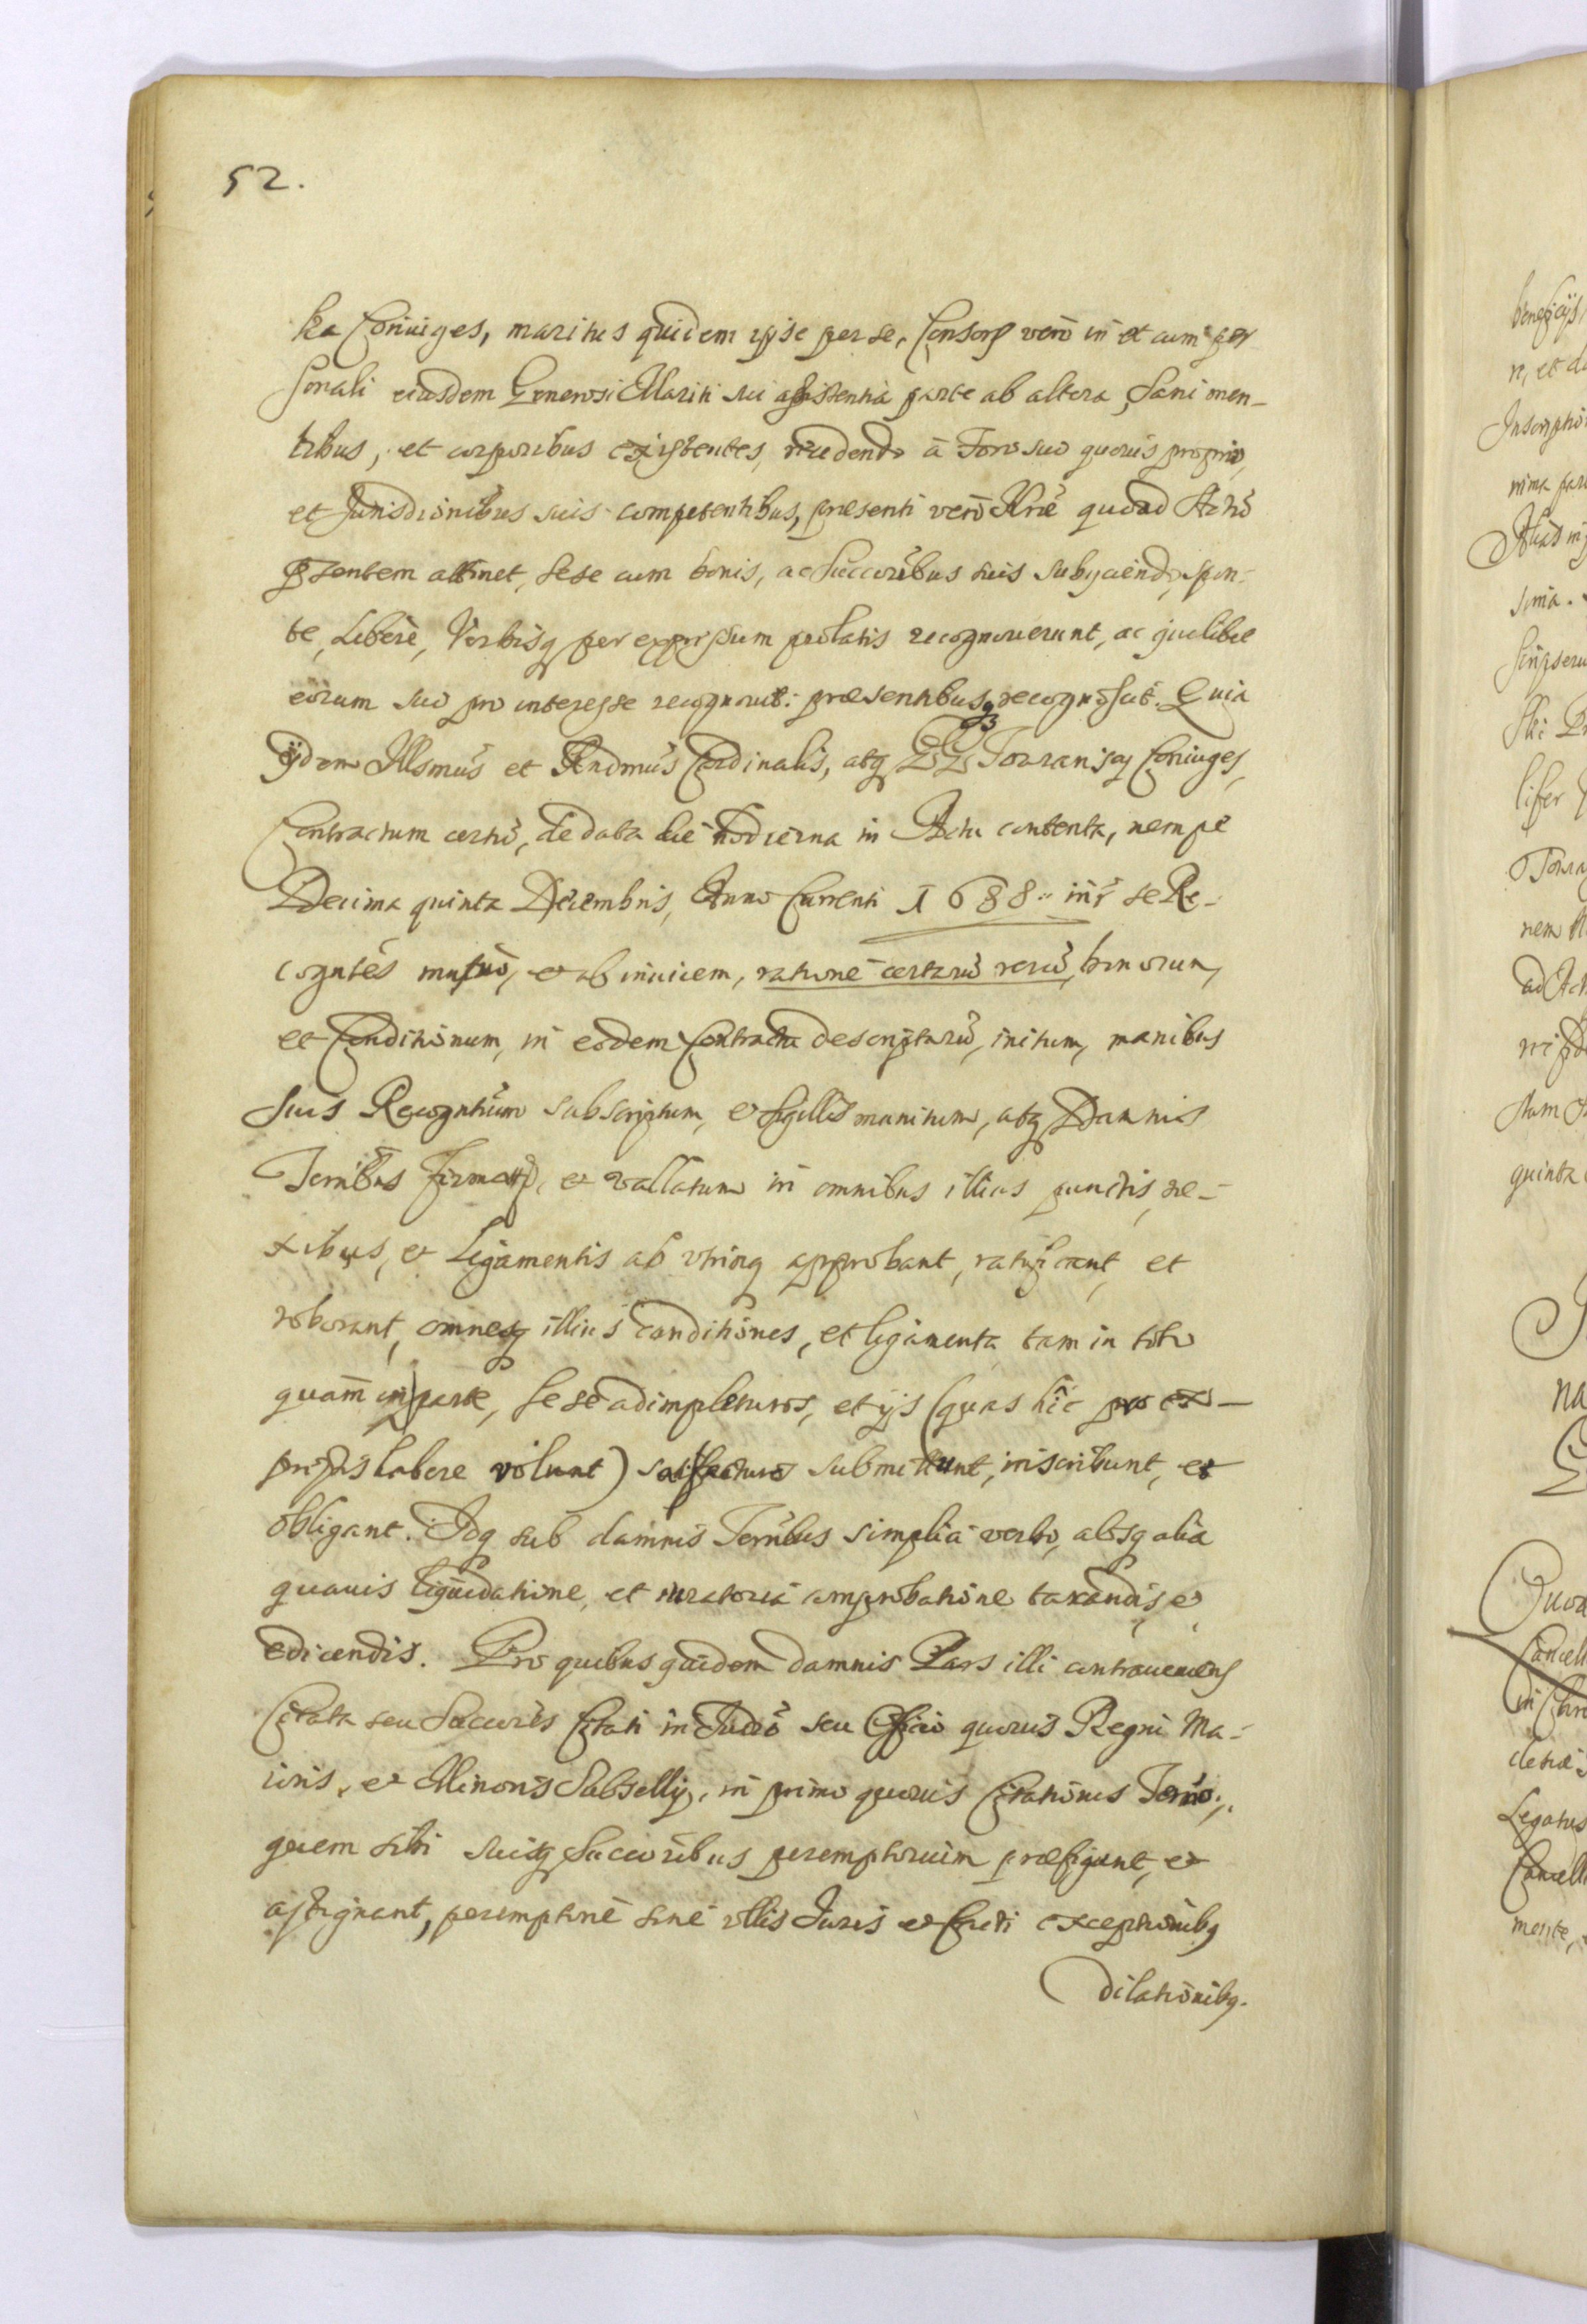 52.
ka Coniuges, maritus quidem ipse per se, Consors verò in et cum per
sonali eiusdem Generosi Mariti sui assistentia parte ab altera, Sani men-
tibus, et corporibus existentes, recedendo à Foro suo quouis proprio,
et Jurisdionibus suis competentibus, praesenti verò quoad Actū
pntem attinet, sese cum bonis, ac Succoribus suis subijciendo, spon-
te, Liberè, Verbisq per expressum prolatis recognouerunt, ac quilibet
eorum suo pro interesse recognouit: praesentibusq recognoscūt. Quia
ijdem Illsmus et Rndmus Cardinalis, atq GG Towianscy Coniuges,
Contractum certū, de data die hodierna in Actu contenta, nempe
Decima quinta Decembris, Anno Currenti 1688. intr se Re-
cogntes mutuò, et ab inuicem, ratione certarū rerū, bonorum,
et Conditionum, in eodem Contractu descriptarū, initum, manibus
suis Recogntium subscriptum, et sigillis munitum, atq Damnis
Terribus firmatū, et vallatum in omnibus illius punctis, ne-
xibus, et Ligamentis ab vtrinq approbant, ratificant, et
roborant, omnesq illius conditiones, et ligamenta tam in toto
quam in parte, sese adimpleturos, et ijs (quas hîc pro ex-
pressis habere volunt) satisfacturos submittunt, inscribunt, et
obligant. Idq sub damnis Terribus simplici verbo, absq alia
quauis liquidatione, et iuratoria comprobatione taxandis, et
edicendis. Pro quibus quidem damnis Pars illi contraueniens
Citata seu Succores Citati in Judio seu Officio quouis Regni Ma-
ioris, et Minoris Subsellij, in primo quouis Citationis Terno,
quem sibi suisq Succoribus peremptorium praefigunt, et
assignant, peremptoriè sine vllis Juris et Facti exceptionibq
dilationibq.